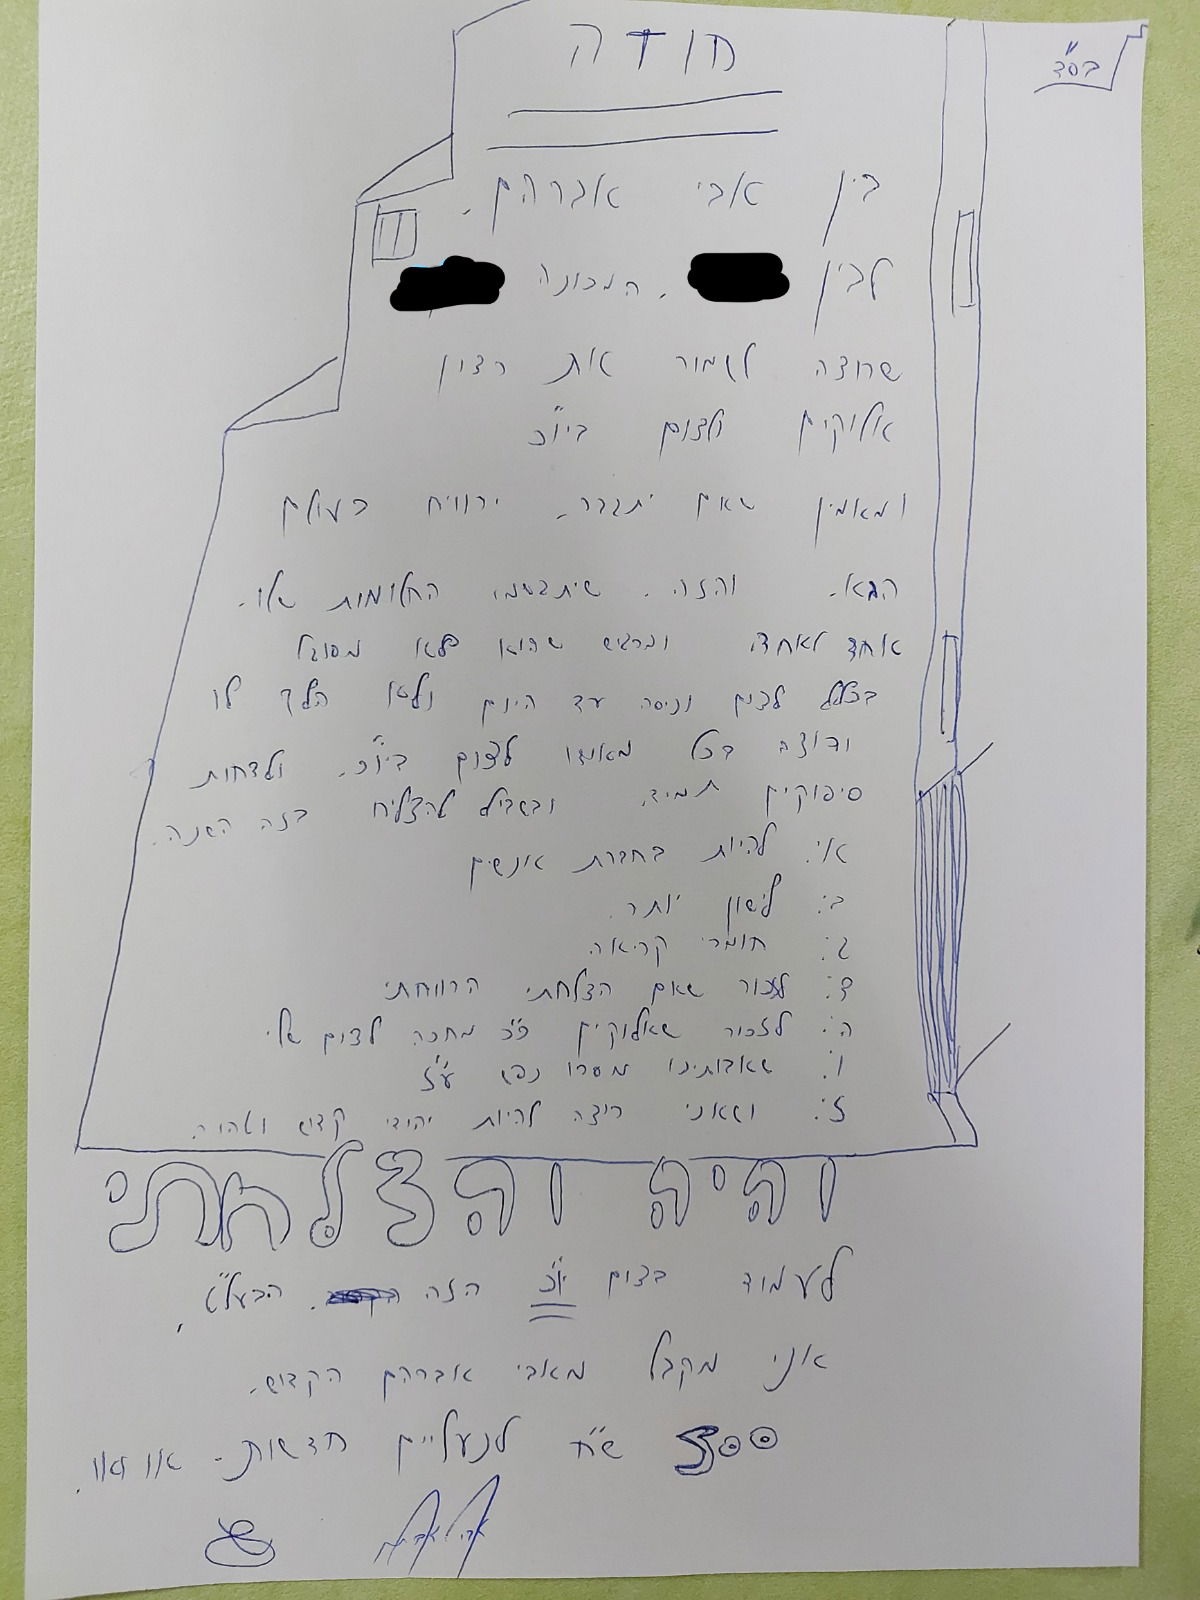 בס"ד
חוזה
בין אבי אברהם.
לבין המכונה
שרוצה לגמור את רצון
אלוקים ולצום ביו"כ
ומאמין שאם יתגבר, ירוויח בעולם
הבא. והזה. שיתגשמו החלומות שלו.
אחד לאחד ומרגיש שהוא לא מסוגל
בכלל לצום וניסה עד היום ולא הלך לו
ורוצה בכל מאודו לצום ביו"כ. ולדחות
סיפוקים תמיד, ובשביל להצליח בזה השנה.
א': להיות בחברת אנשים
ב': לישון יותר.
ג': חומרי קריאה
ד': לזכור שאם הצלחתי הרווחתי
ה': לזכור שאלוקים כ"כ מחכה לצום שלי
ו': שאבותינו מסרו נפש ע"ז
ז': ושאני רוצה להיות יהודי קדוש וטהור.
והיה והצלחתי
לעמוד בצום יו"כ הזה הבעל"ט,
אני מקבל מאבי אברהם הקדוש.
300 ש"ח לנעליים חדשות.